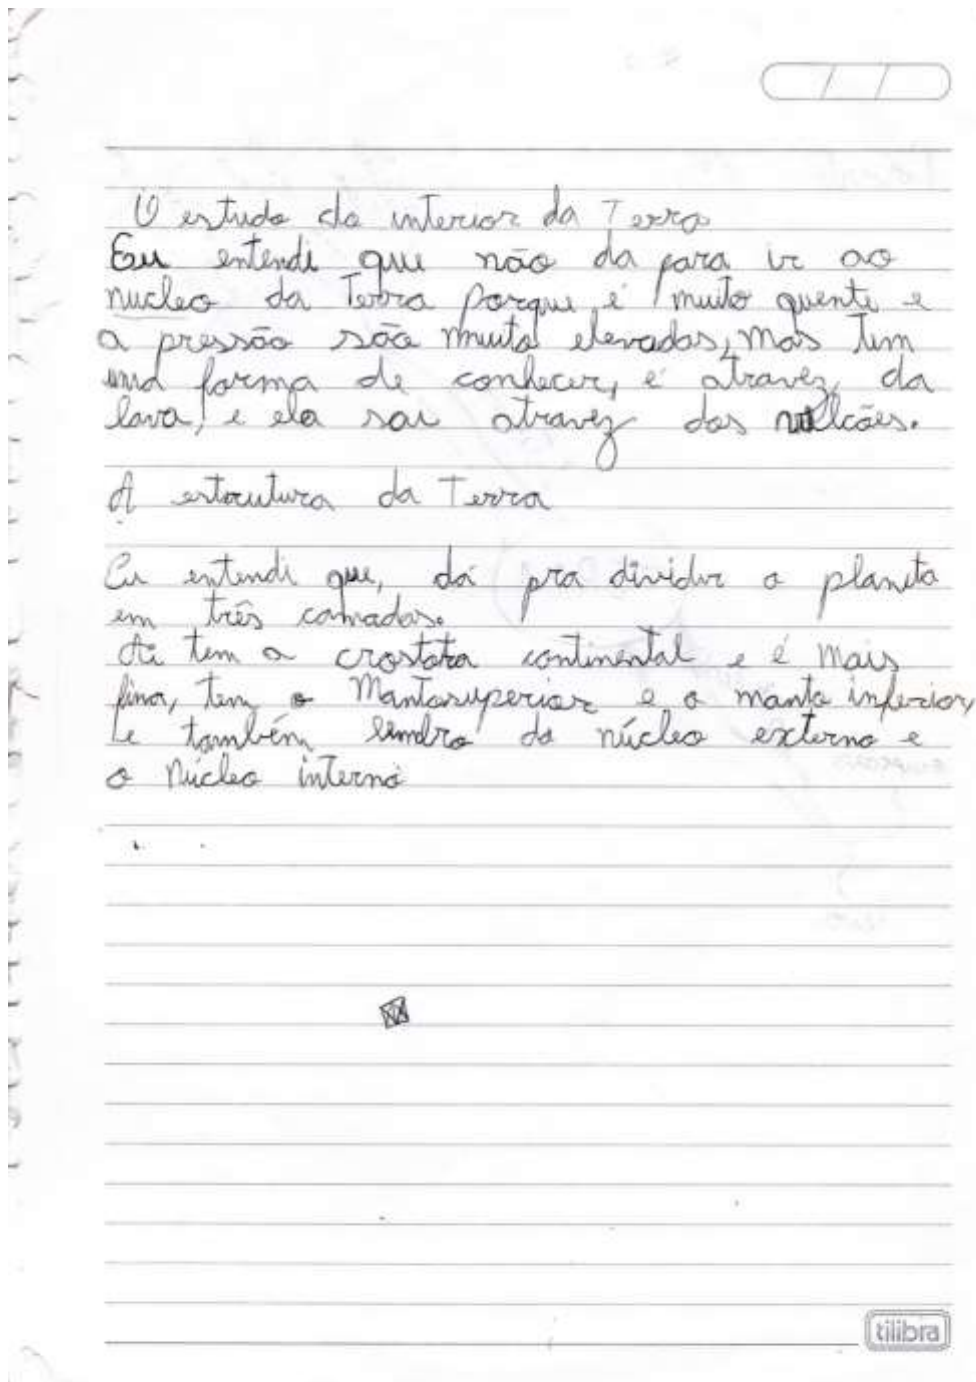 O estudo do interior da Terra
Eu entendi que não da para ir ao
nucleo da Terra porque é muito quente e
a pressão são muito elevadas, mas tem
uma forma de conhecer, é atravéz da
lava, e ela sai atravez dos vulcões.
A estrutura da Terra
Eu entendi que, dá pra dividir o planeta
em três camadas.
Ai tem a crosta continental e é mais
fina, tem o Manto superior e o manto inferior,
e também do núcleo externo e
o núcleo interno
tilibra